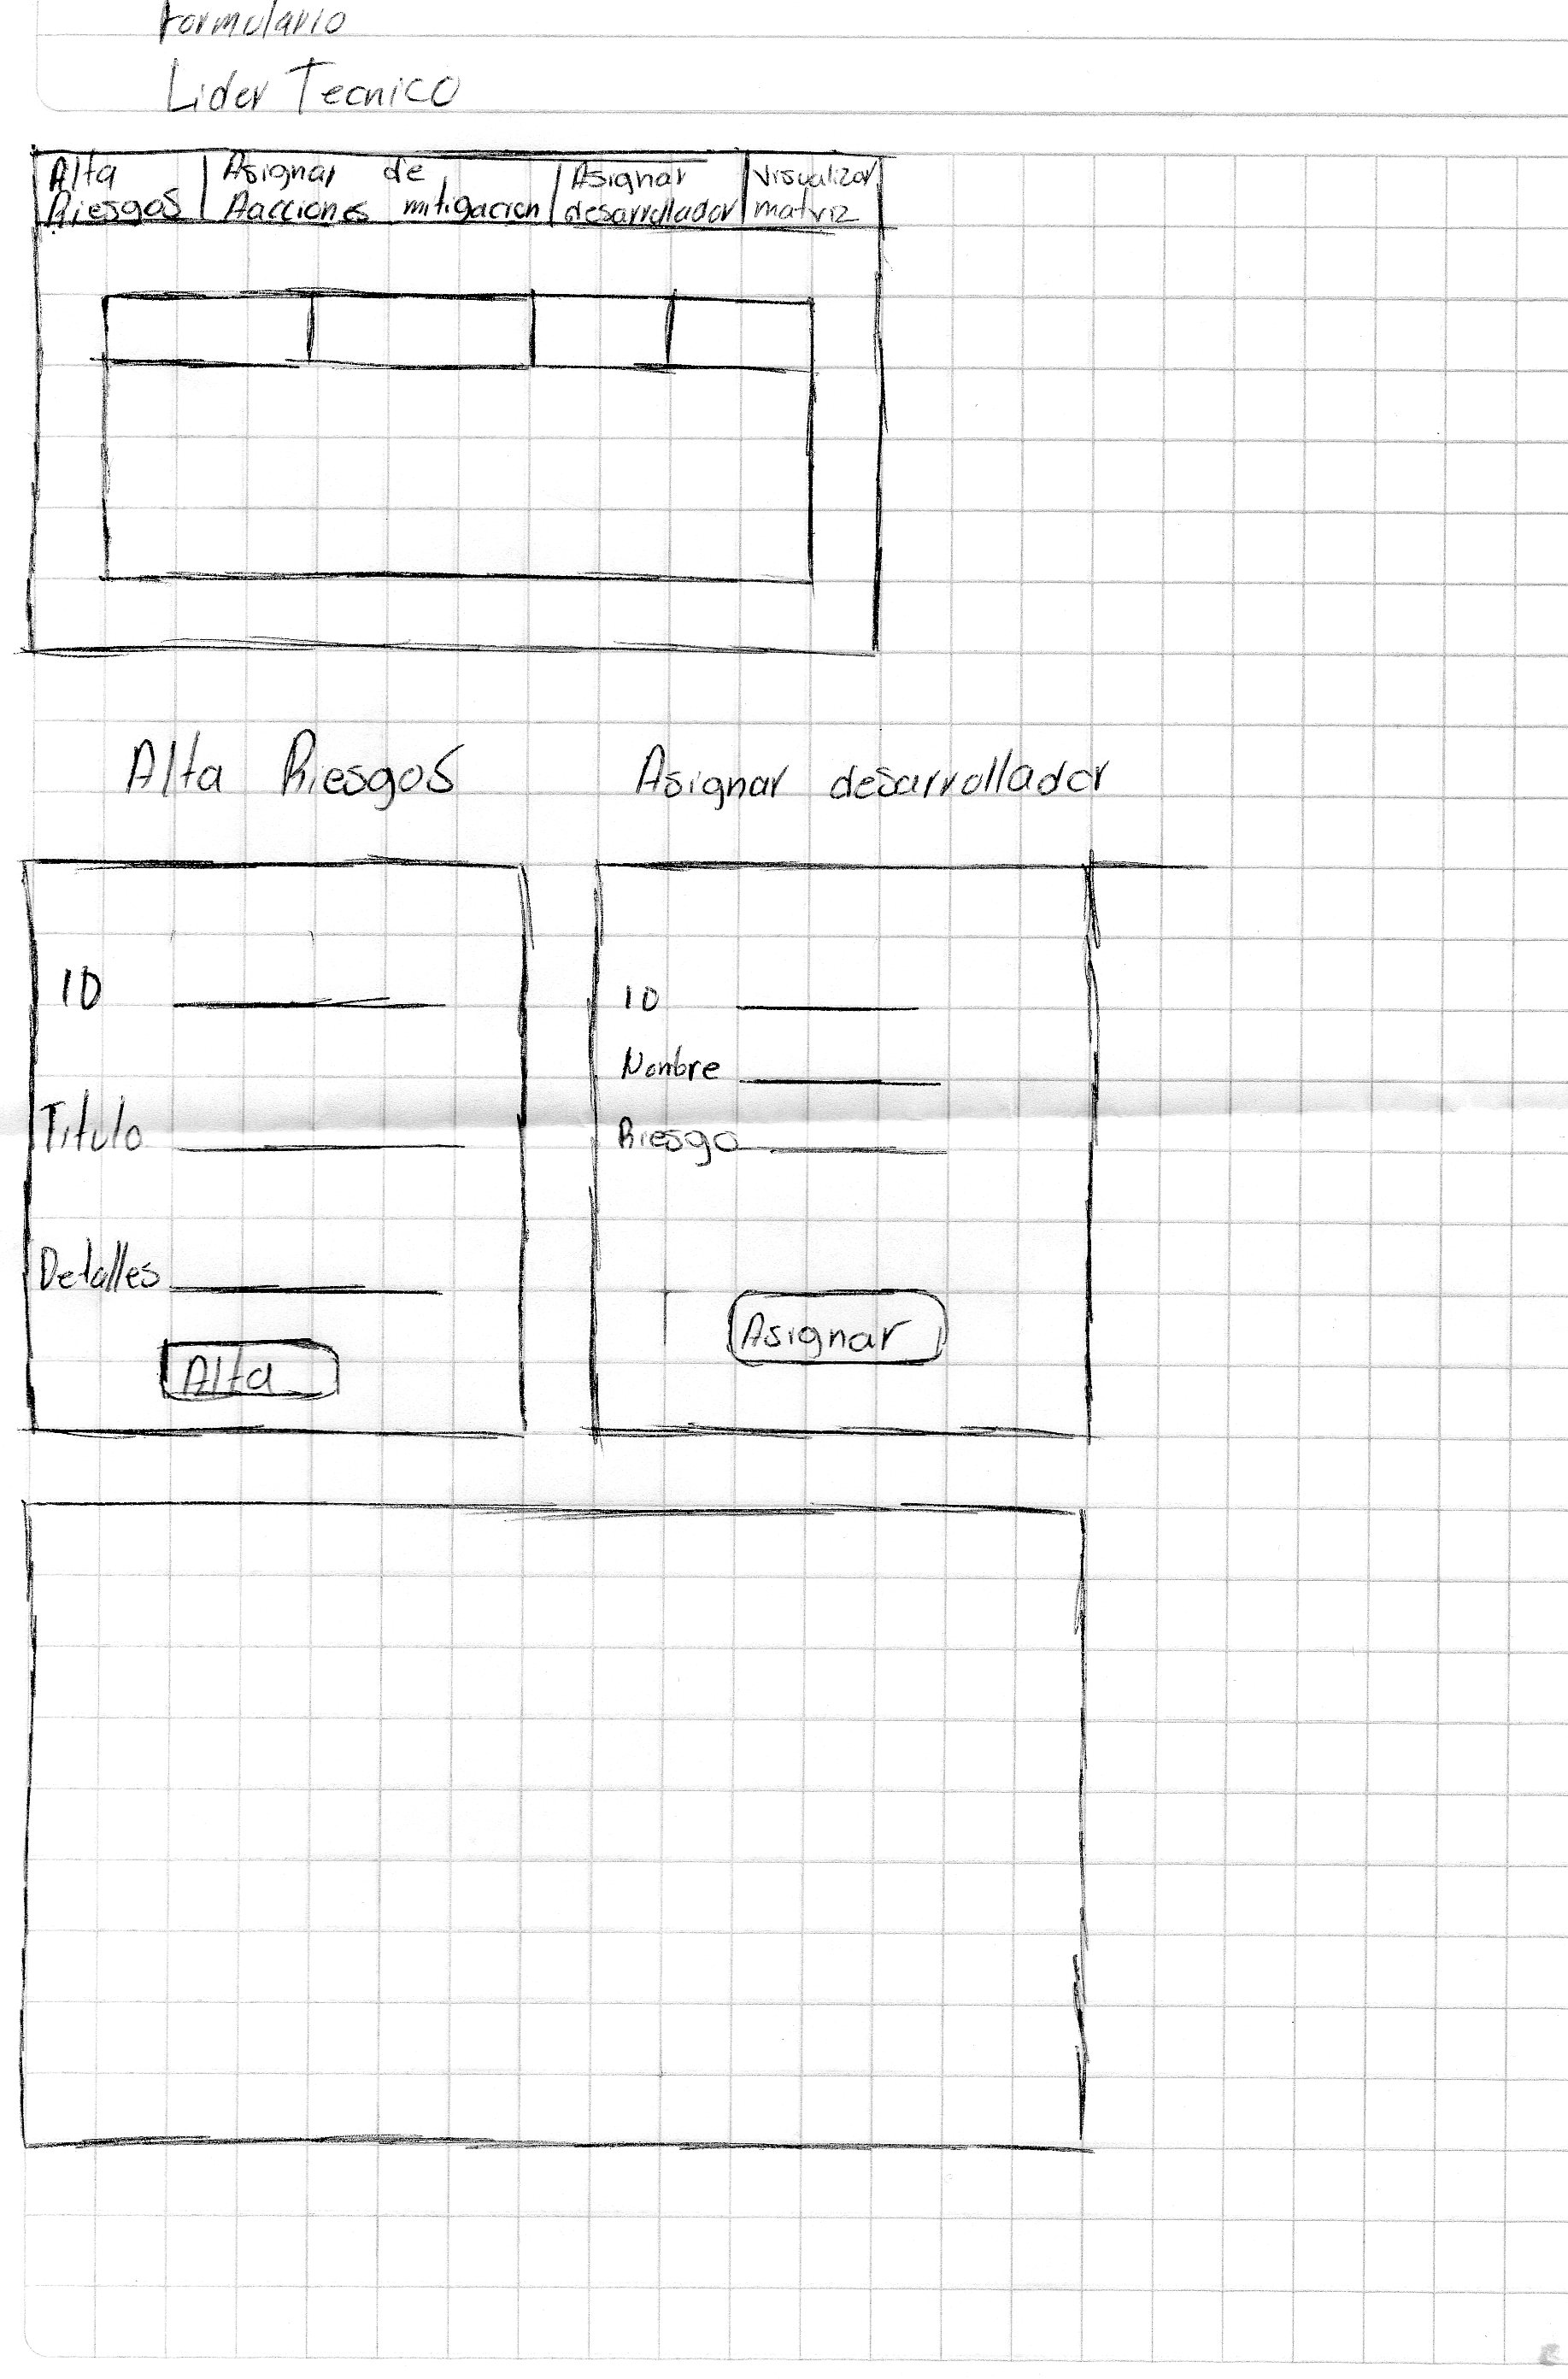 Formulario
Lider Tecnico
Alta Riesgos
Asignar de Aacciones mitigacion
Asignar desarrollador
visualizar matriz
Alta Riesgos
Asignar desarrollador
ID
Titulo
Detalles
Alta
ID
Nombre
Riesgo
Asignar